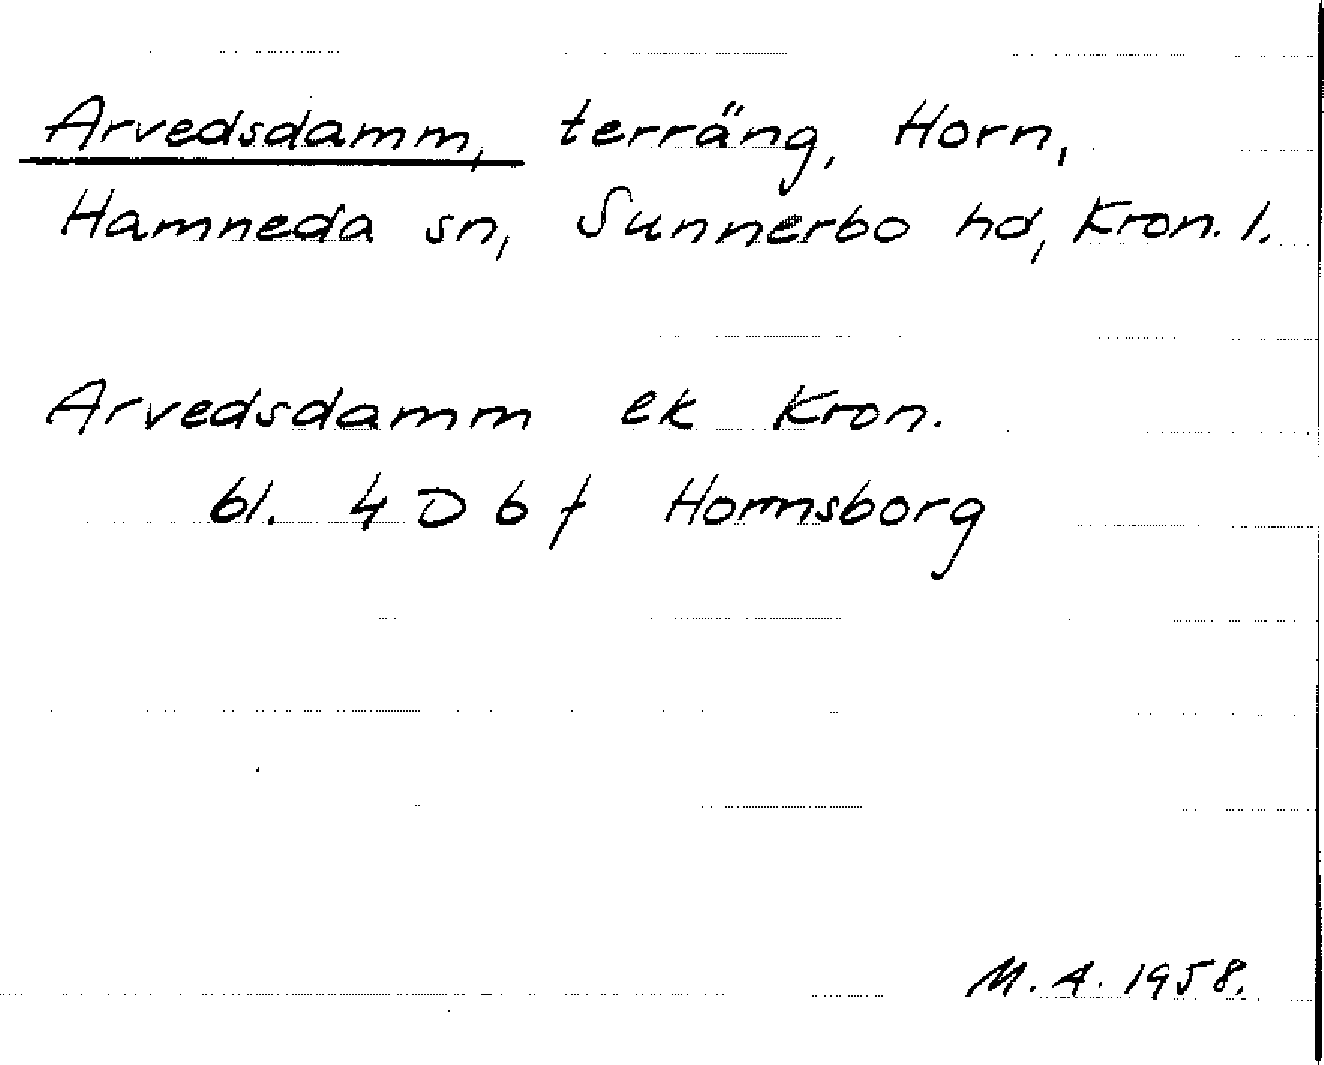 Arvedsdamm, terräng, Horn,
Hamneda sn, Sunnerbo hd, Kron. l.
Arvedsdamm ek Kron.
bl. 4 D b f Hornsborg
M. A. 1958.